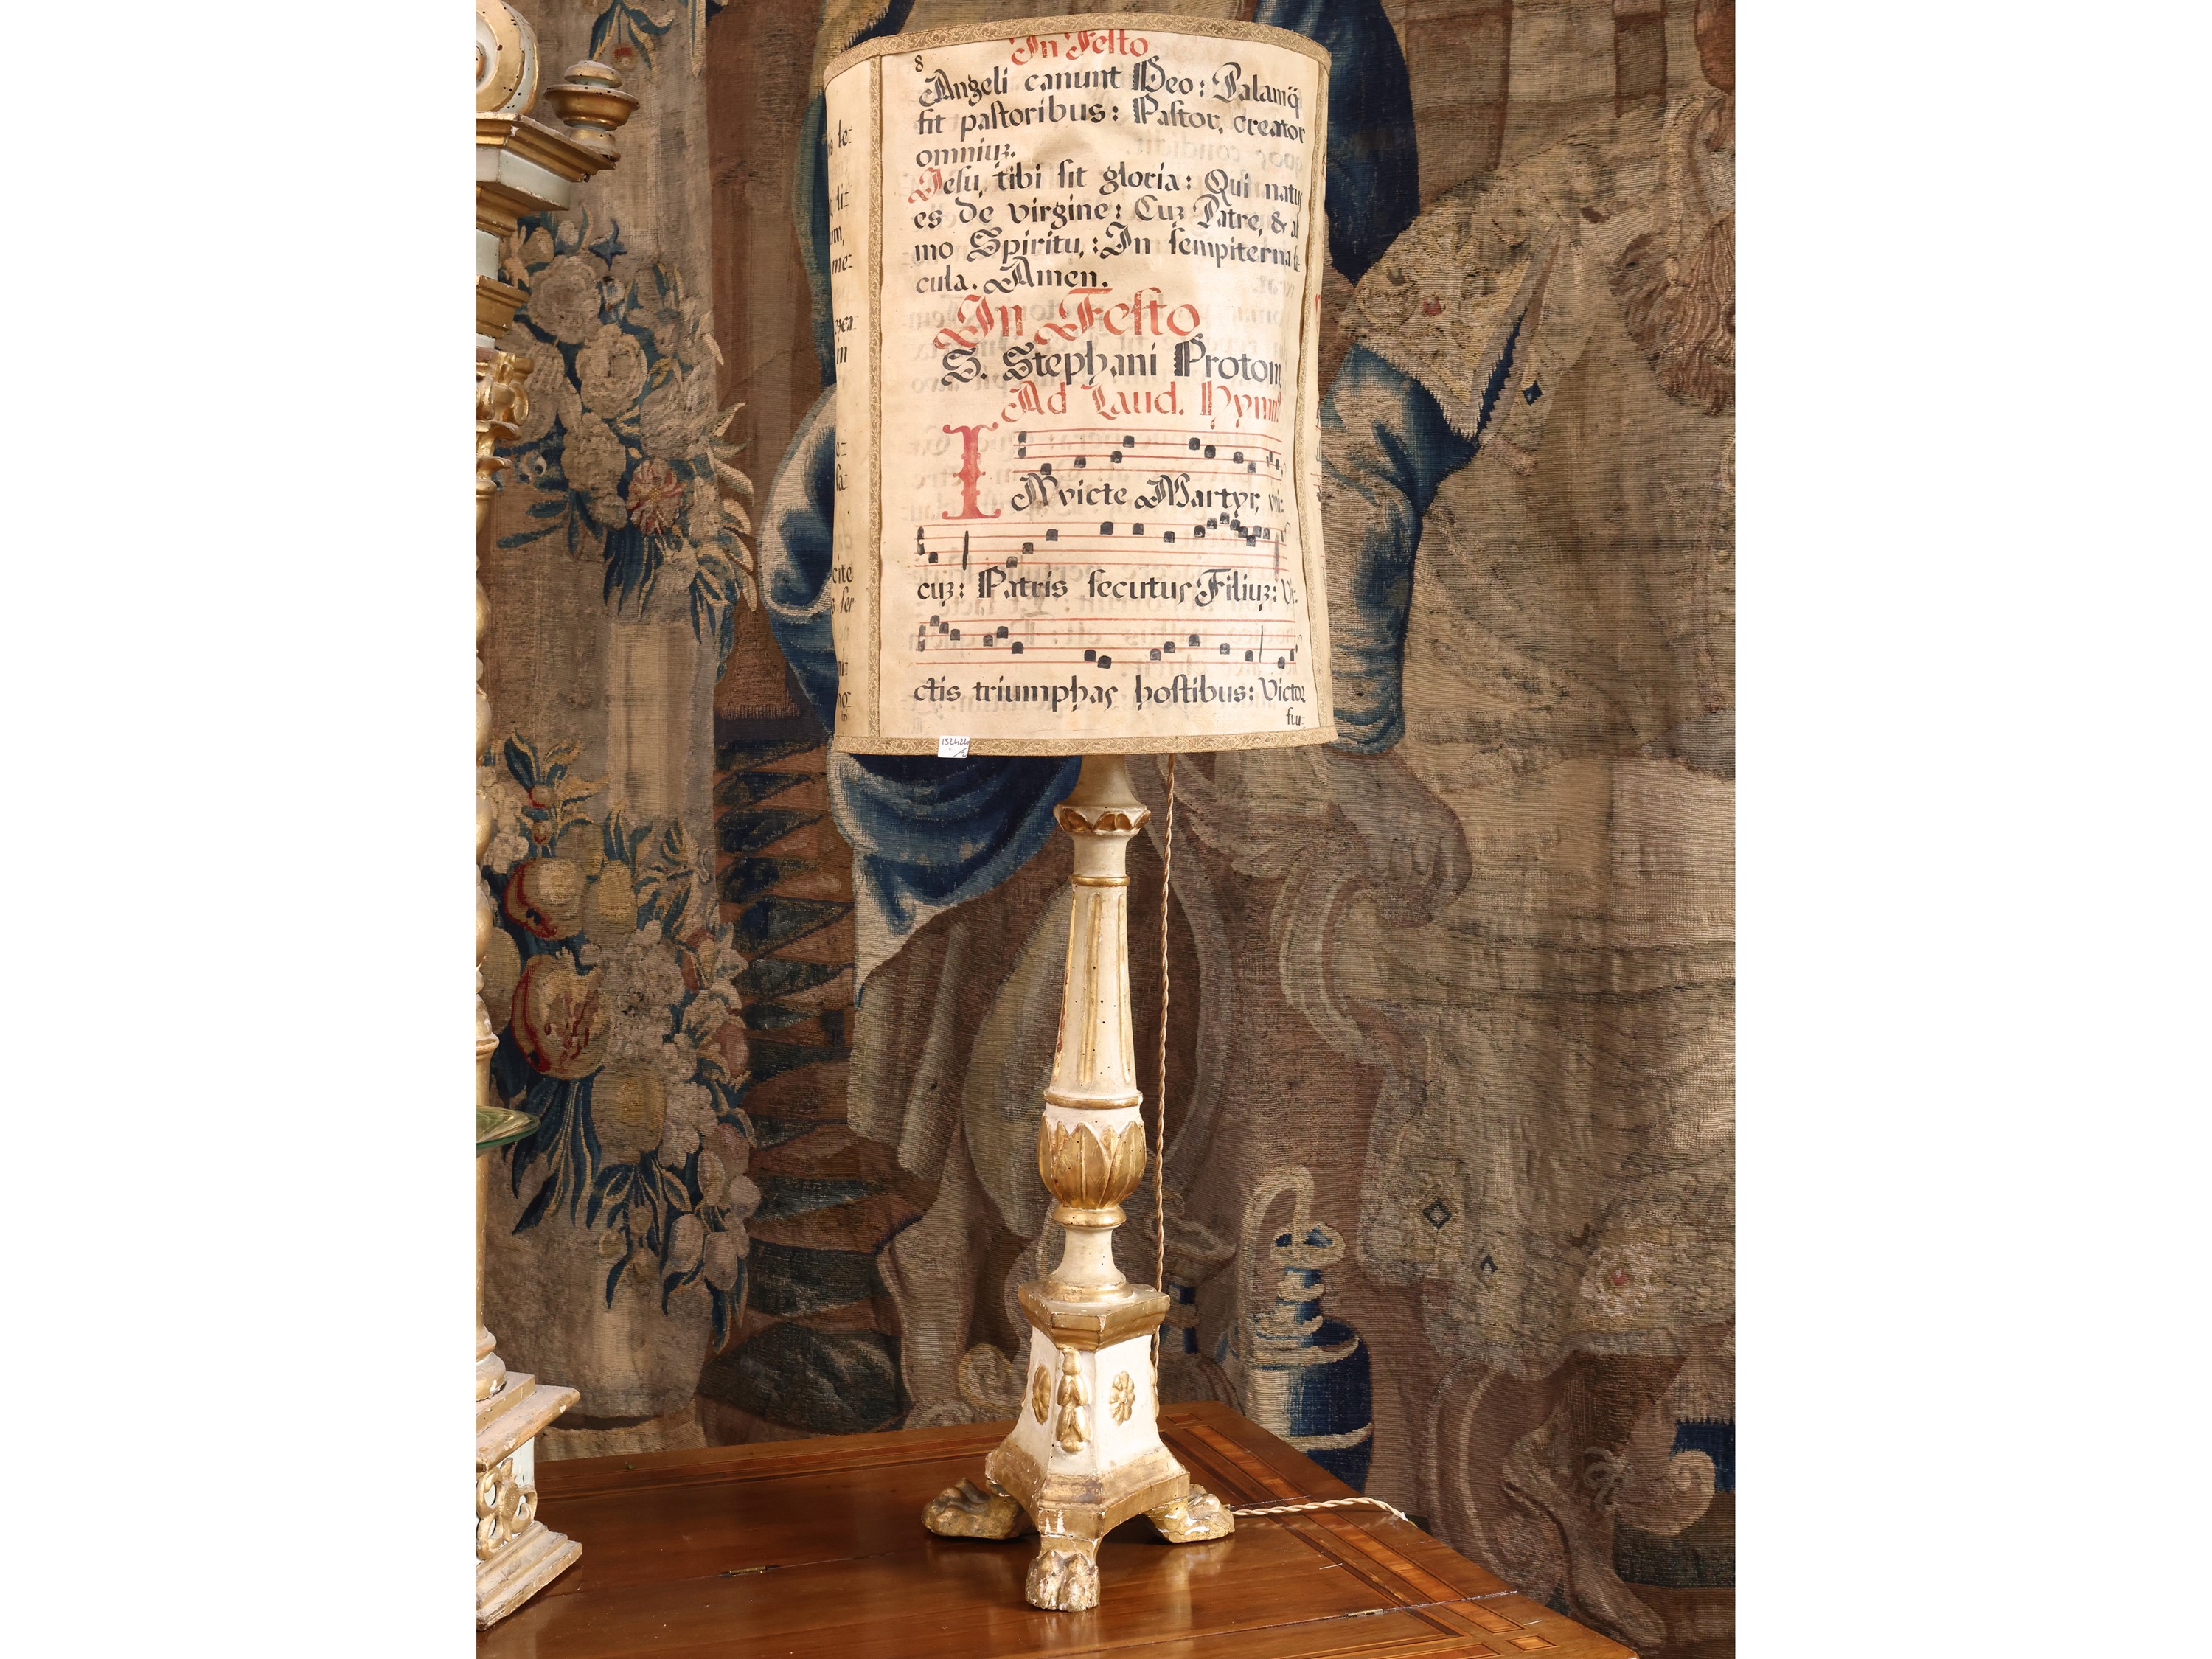 In Festo
8
Angeli canunt Deo: Palamq̃
fit pastoribus: Pastor, creator
omniuz.
Jesu, tibi sit gloria: Qui natus
es de virgine: Cuz Patre, & al
mo Spiritu,: In sempiterna sę
cula. Amen.
In Festo
S. Stephani Protom
Ad Laud. Hymn
INvicte Martyr, vni:
cuz: Patris secutus Filiuz: Vi:
ctis triumphas hostibus: Victor
fru: